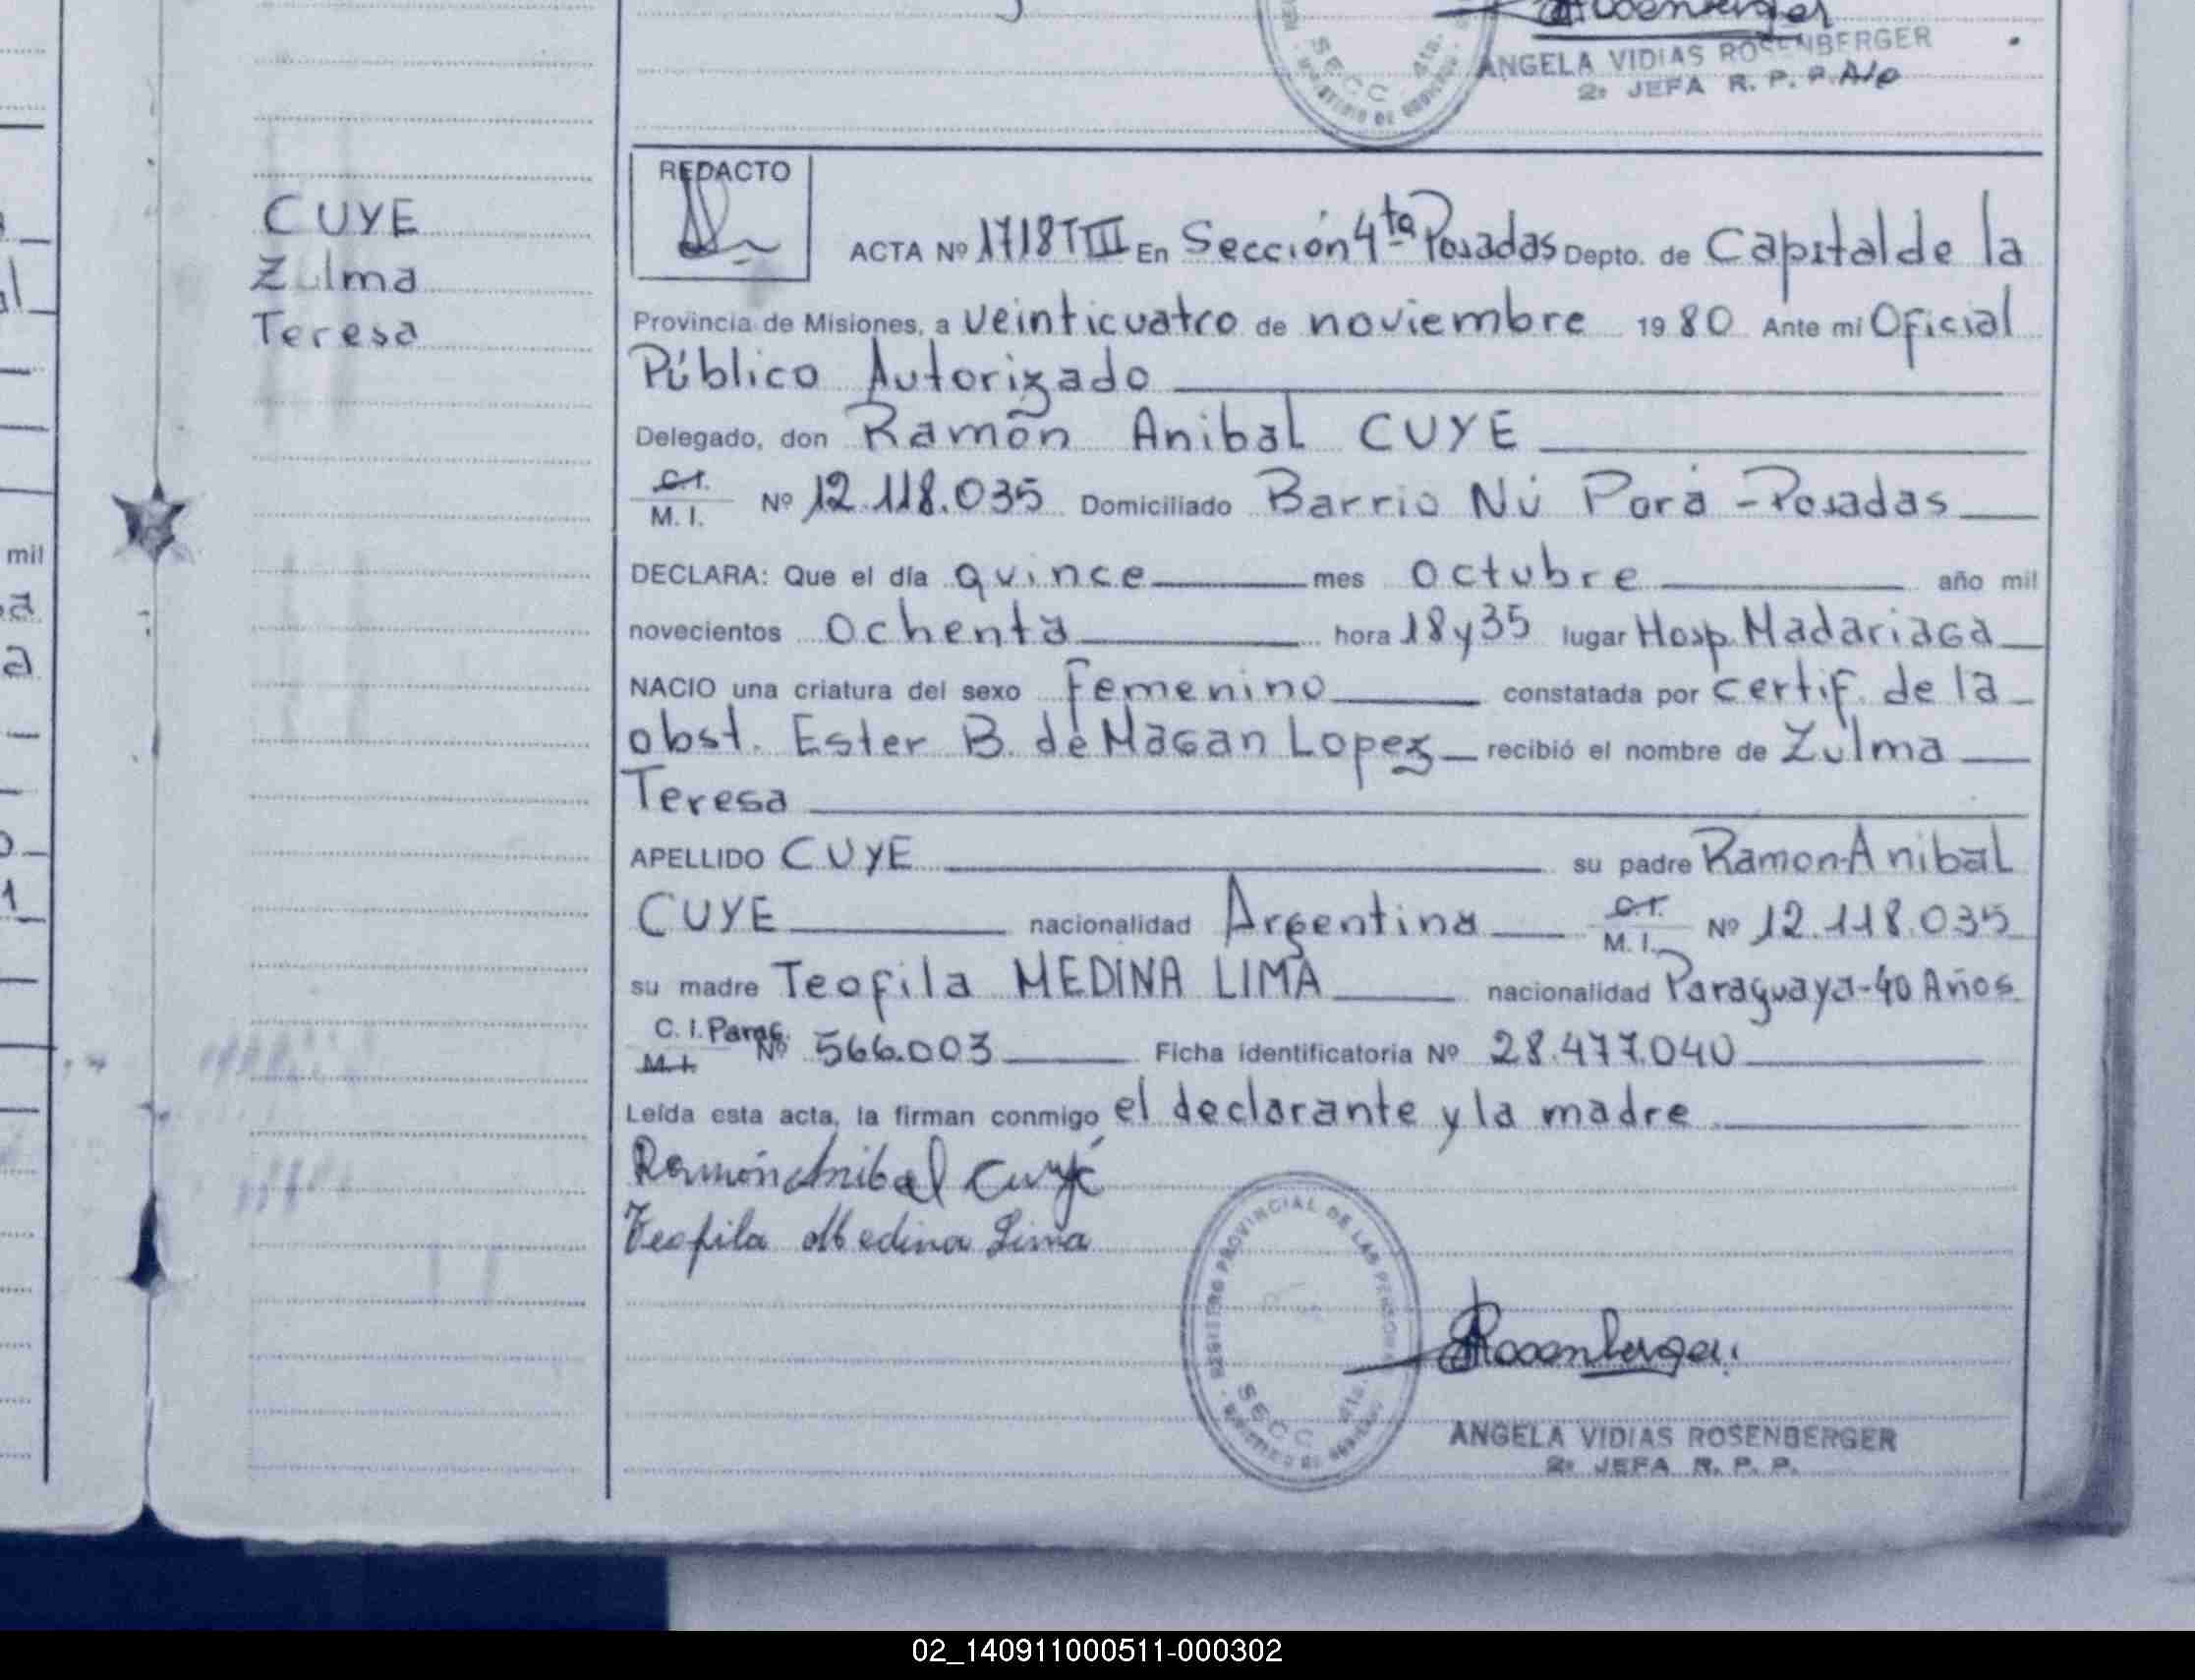 Rosenberger
ANGELA VIDIAS ROSENBERGER
2º JEFA R. P. P. A/c
SECC 4ta.
CUYE
Zulma
Teresa
mil
REDACTO
ACTA Nº 1718 T III En Sección 4ta Posadas Depto. de Capital de la
Provincia de Misiones, a veinticuatro de noviembre 1980 Ante mi Oficial
Público Autorizado
Delegado, don Ramón Anibal CUYE
C.I. M. I. Nº 12.118.035 Domiciliado Barrio Ñú Porá - Posadas
DECLARA: Que el día quince mes octubre año mil
novecientos ochenta hora 18 y 35 lugar Hosp. Madariaga
NACIO una criatura del sexo femenino constatada por certif. de la
obst. Ester B. de Magan Lopez recibió el nombre de Zulma
Teresa
APELLIDO CUYE su padre Ramon Anibal
CUYE nacionalidad Argentina C.I. M. I. Nº 12.118.035
su madre Teofila MEDINA LIMA nacionalidad Paraguaya-40 Años
C. I. Parag. M. I. Nº 566.003 Ficha identificatoria Nº 28.477.040
Leída esta acta, la firman conmigo el declarante y la madre
Ramón Anibal Cuyé
Teofila Medina Lima
REGISTRO PROVINCIAL DE LAS PERSONAS
SECC 4ta.
Rosenberger
ANGELA VIDIAS ROSENBERGER
2º JEFA R. P. P.
02_140911000511-000302